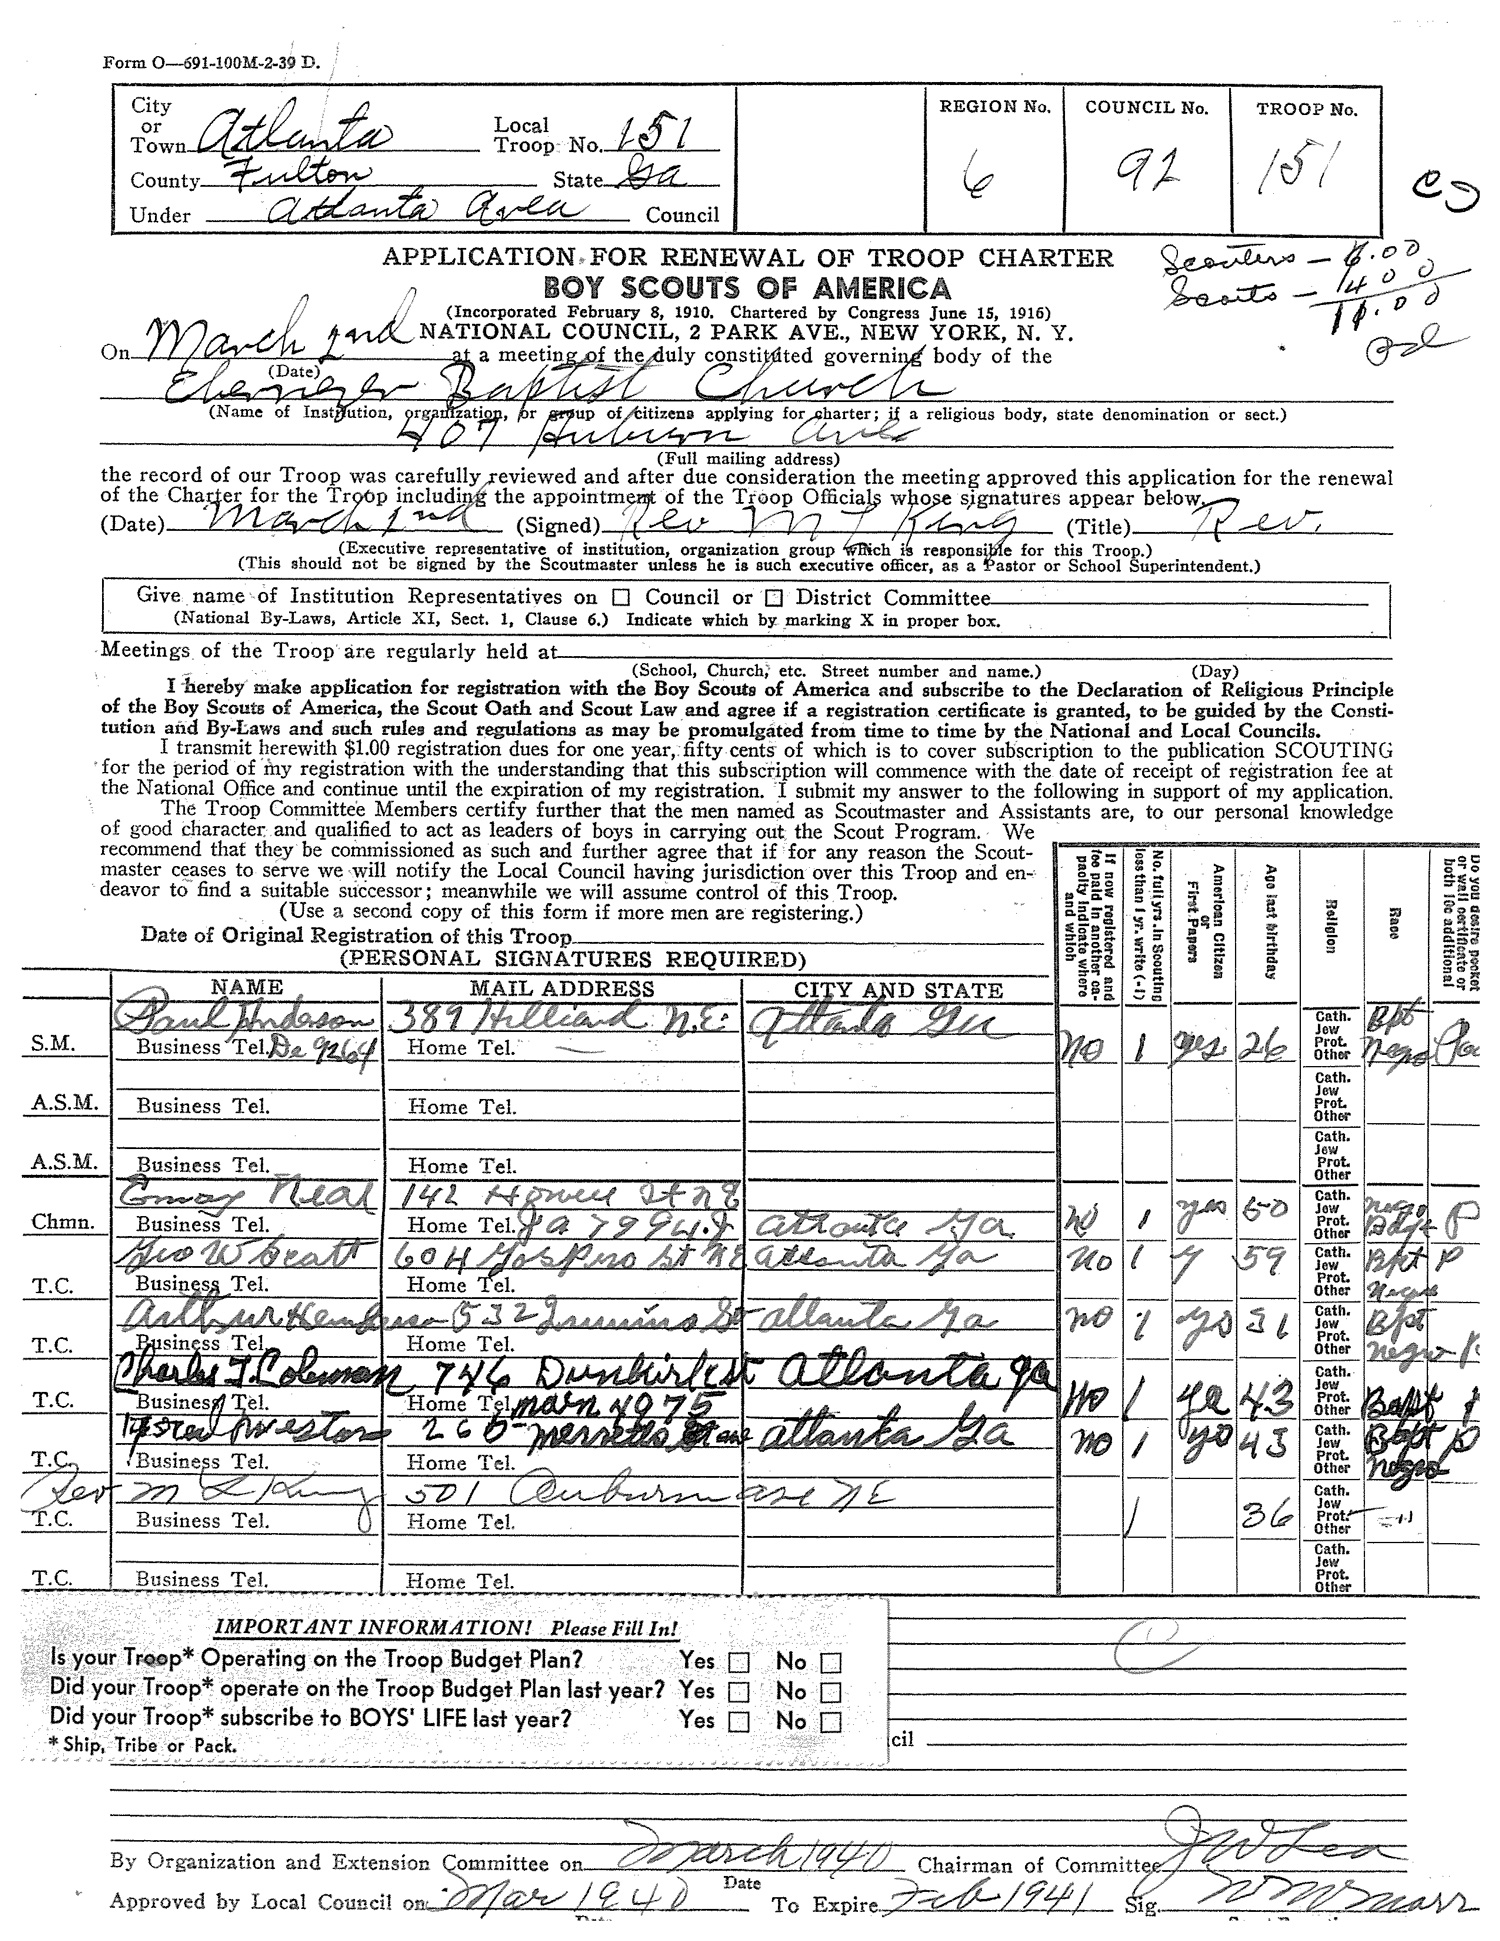 Form O—691-100M-2-39 D.
City or Town Atlanta Local Troop No. 151
County Fulton State Ga
Under Atlanta Area Council
REGION No. COUNCIL No. TROOP No.
6 92 151
APPLICATION FOR RENEWAL OF TROOP CHARTER
Scouters — 6.00
BOY SCOUTS OF AMERICA
Scouts —
(Incorporated February 8, 1910. Chartered by Congress June 15, 1916)
NATIONAL COUNCIL, 2 PARK AVE., NEW YORK, N. Y.
On March 2nd at a meeting of the duly constituted governing body of the
(Date)
Ebenezer Baptist Church
(Name of Institution, organization, or group of citizens applying for charter; if a religious body, state denomination or sect.)
407 Auburn Ave
(Full mailing address)
the record of our Troop was carefully reviewed and after due consideration the meeting approved this application for the renewal
of the Charter for the Troop including the appointment of the Troop Officials whose signatures appear below.
(Date) March 2nd (Signed) Rev M L King (Title) Rev.
(Executive representative of institution, organization group which is responsible for this Troop.)
(This should not be signed by the Scoutmaster unless he is such executive officer, as a Pastor or School Superintendent.)
Give name of Institution Representatives on ☐ Council or ☐ District Committee
(National By-Laws, Article XI, Sect. 1, Clause 6.) Indicate which by marking X in proper box.
Meetings of the Troop are regularly held at
(School, Church, etc. Street number and name.) (Day)
I hereby make application for registration with the Boy Scouts of America and subscribe to the Declaration of Religious Principle
of the Boy Scouts of America, the Scout Oath and Scout Law and agree if a registration certificate is granted, to be guided by the Consti-
tution and By-Laws and such rules and regulations as may be promulgated from time to time by the National and Local Councils.
I transmit herewith $1.00 registration dues for one year, fifty cents of which is to cover subscription to the publication SCOUTING
for the period of my registration with the understanding that this subscription will commence with the date of receipt of registration fee at
the National Office and continue until the expiration of my registration. I submit my answer to the following in support of my application.
The Troop Committee Members certify further that the men named as Scoutmaster and Assistants are, to our personal knowledge
of good character and qualified to act as leaders of boys in carrying out the Scout Program. We
recommend that they be commissioned as such and further agree that if for any reason the Scout-
master ceases to serve we will notify the Local Council having jurisdiction over this Troop and en-
deavor to find a suitable successor; meanwhile we will assume control of this Troop.
(Use a second copy of this form if more men are registering.)
Date of Original Registration of this Troop
(PERSONAL SIGNATURES REQUIRED)
If now registered and fee paid in another capacity indicate where and which
No. full yrs. in Scouting less than 1 yr. write (-1)
American Citizen or First Papers
Age last birthday
Religion
Race
Do you desire pocket or wall certificate or both 10c additional
NAME MAIL ADDRESS CITY AND STATE
Paul Anderson 389 Hilliard N.E. Atlanta Ga
S.M. Business Tel. Home Tel. — No 1 yes 26 Cath. Jew Prot. Other Bpt Negro
A.S.M. Business Tel. Home Tel. Cath. Jew Prot. Other
A.S.M. Business Tel. Home Tel. Cath. Jew Prot. Other
Emory Neal 142 Howell St NE
Chmn. Business Tel. Home Tel. Ja 7994.J Atlanta Ga. No 1 yes 50 Cath. Jew Prot. Other Negro P
Geo W Scott 604 Atlanta Ga
T.C. Business Tel. Home Tel. No 1 y 59 Cath. Jew Prot. Other Bpt Negro P
Arthur Henderson 532 St Atlanta Ga
T.C. Business Tel. Home Tel. No 1 Cath. Jew Prot. Other Bpt Negro
Charles T. Coleman 746 Dunkirk st Atlanta ga
T.C. Business Tel. Home Tel. main 4975 No 1 43 Cath. Jew Prot. Other Bapt
Atlanta Ga
T.C. Business Tel. Home Tel. No 1 43 Cath. Jew Prot. Other Bapt Negro P
Rev M L King 501 Auburn ave NE
T.C. Business Tel. Home Tel. 1 36 Cath. Jew Prot. Other
T.C. Business Tel. Home Tel. Cath. Jew Prot. Other
IMPORTANT INFORMATION! Please Fill In!
Is your Troop* Operating on the Troop Budget Plan? Yes ☐ No ☐
Did your Troop* operate on the Troop Budget Plan last year? Yes ☐ No ☐
Did your Troop* subscribe to BOYS' LIFE last year? Yes ☐ No ☐
* Ship, Tribe or Pack.
cil
By Organization and Extension Committee on March 1940 Chairman of Committee J W Lea
Date
Approved by Local Council on Mar 1940 To Expire Feb 1941 Sig.